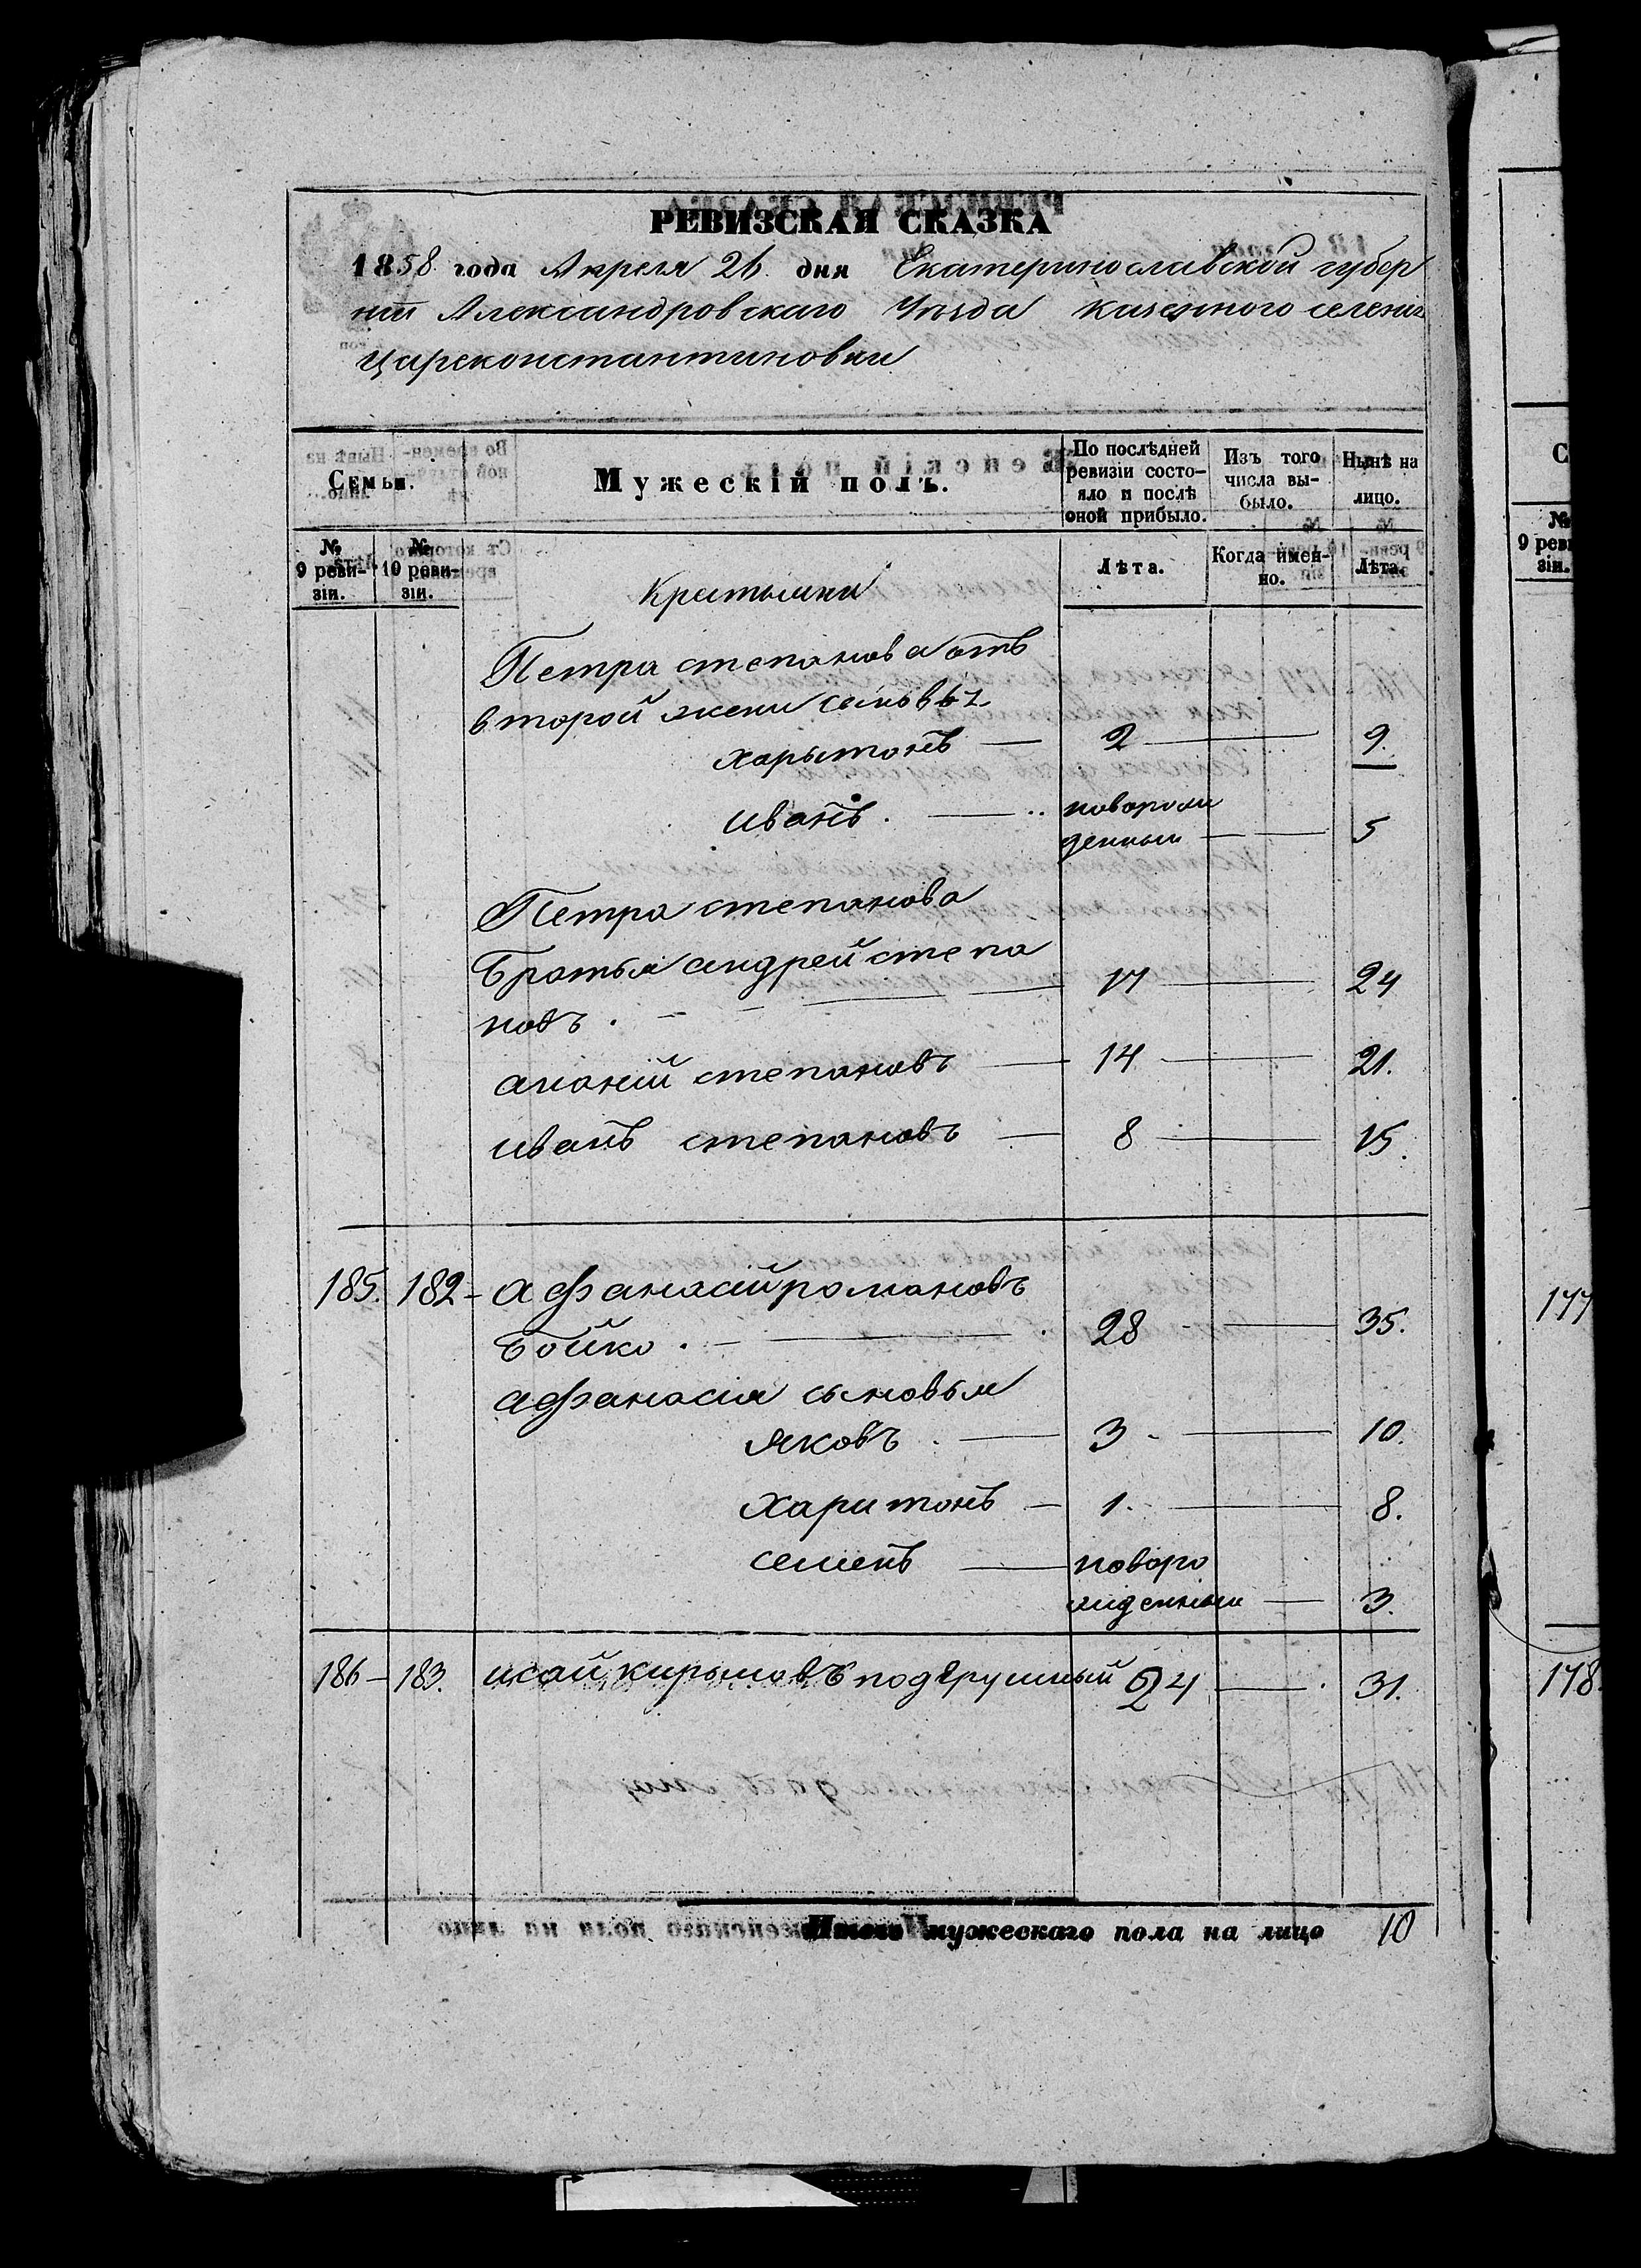 РЕВИЗСКАЯ СКАЗКА
1858. года Апреля 26. дня Екатеринославской губер
нии Александровскаго Уѣзда казенного селения
Цареконстантиновки
Семьи.
Мужескій полъ.
По послѣдней ревизіи состо-
яло и послѣ
оной прибыло.
Изъ того
числа вы-
было.
Нынѣ на
лицо.
№ 9 реви-
зіи.
№ 10 реви-
зіи.
Лѣта.
Когда имен-
но.
Лѣта.
Крестьяни
Петра степанова отъ
второй жени
харытонъ — 2 — 9.
иванъ. — новорож
денный — 5
Петра степанова
братья андрей степа
новъ. — 17 — 24
степановъ — 14 — 21.
иванъ степановъ — 8 — 15.
185. 182 - афанасій романовъ
бойко. — 28 — 35.
афанасія сыновья
яковъ. — 3 - — 10.
харитонъ — 1. — 8.
семенъ — новоро
жденный — 3.
186 — 183. исай кириловъ подгрушный 24 — 31.
Итого мужескаго пола на лицо 10
С
№
9 реви
зіи.
177
178.